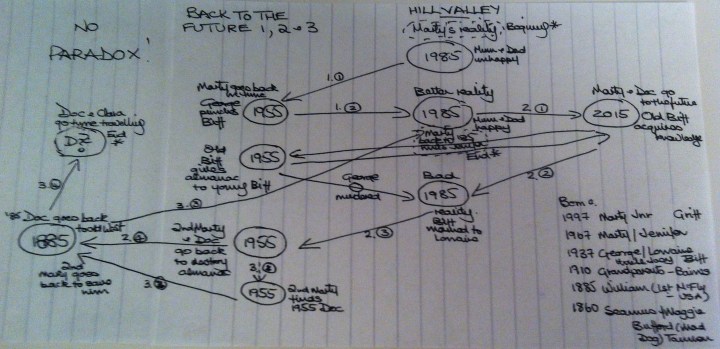 NO
PARADOX!
BACK TO THE
FUTURE 1, 2 + 3
HILL VALLEY
Marty's reality. Begining *
1985
Mum + Dad
unhappy
1. ①
Marty goes back
in time
George
punches
Biff
1955
1. ②
Better reality
1985
Mum + Dad
happy
2. ①
Marty + Doc go
to the future
2015
Old Biff
acquires
knowledge
Marty
back to 85
End *
Doc + Clara
go time travelling
D?
End
*
3.
Old
Biff
gives
almanac
to young Biff
1955
George
murdered
Bad
1985
reality
Biff
married to
Lorraine
2. ②
2. ③
3.
'85 Doc goes back
to old West
1885
2nd
Marty goes
back to save
him
2.
2nd Marty
+ Doc
go back
to destroy
almanac
1955
3.
1955
2nd Marty
finds
1955 Doc
3.
Born.
1997 Marty Jnr Griff
1967 Marty / Jenifer
1937 George / Lorraine
Biff
1910 Grandparents - Baines
1885 William (1st McFly
- USA)
1860 Seamus / Maggie
Buford (Mad
Dog) Tannen